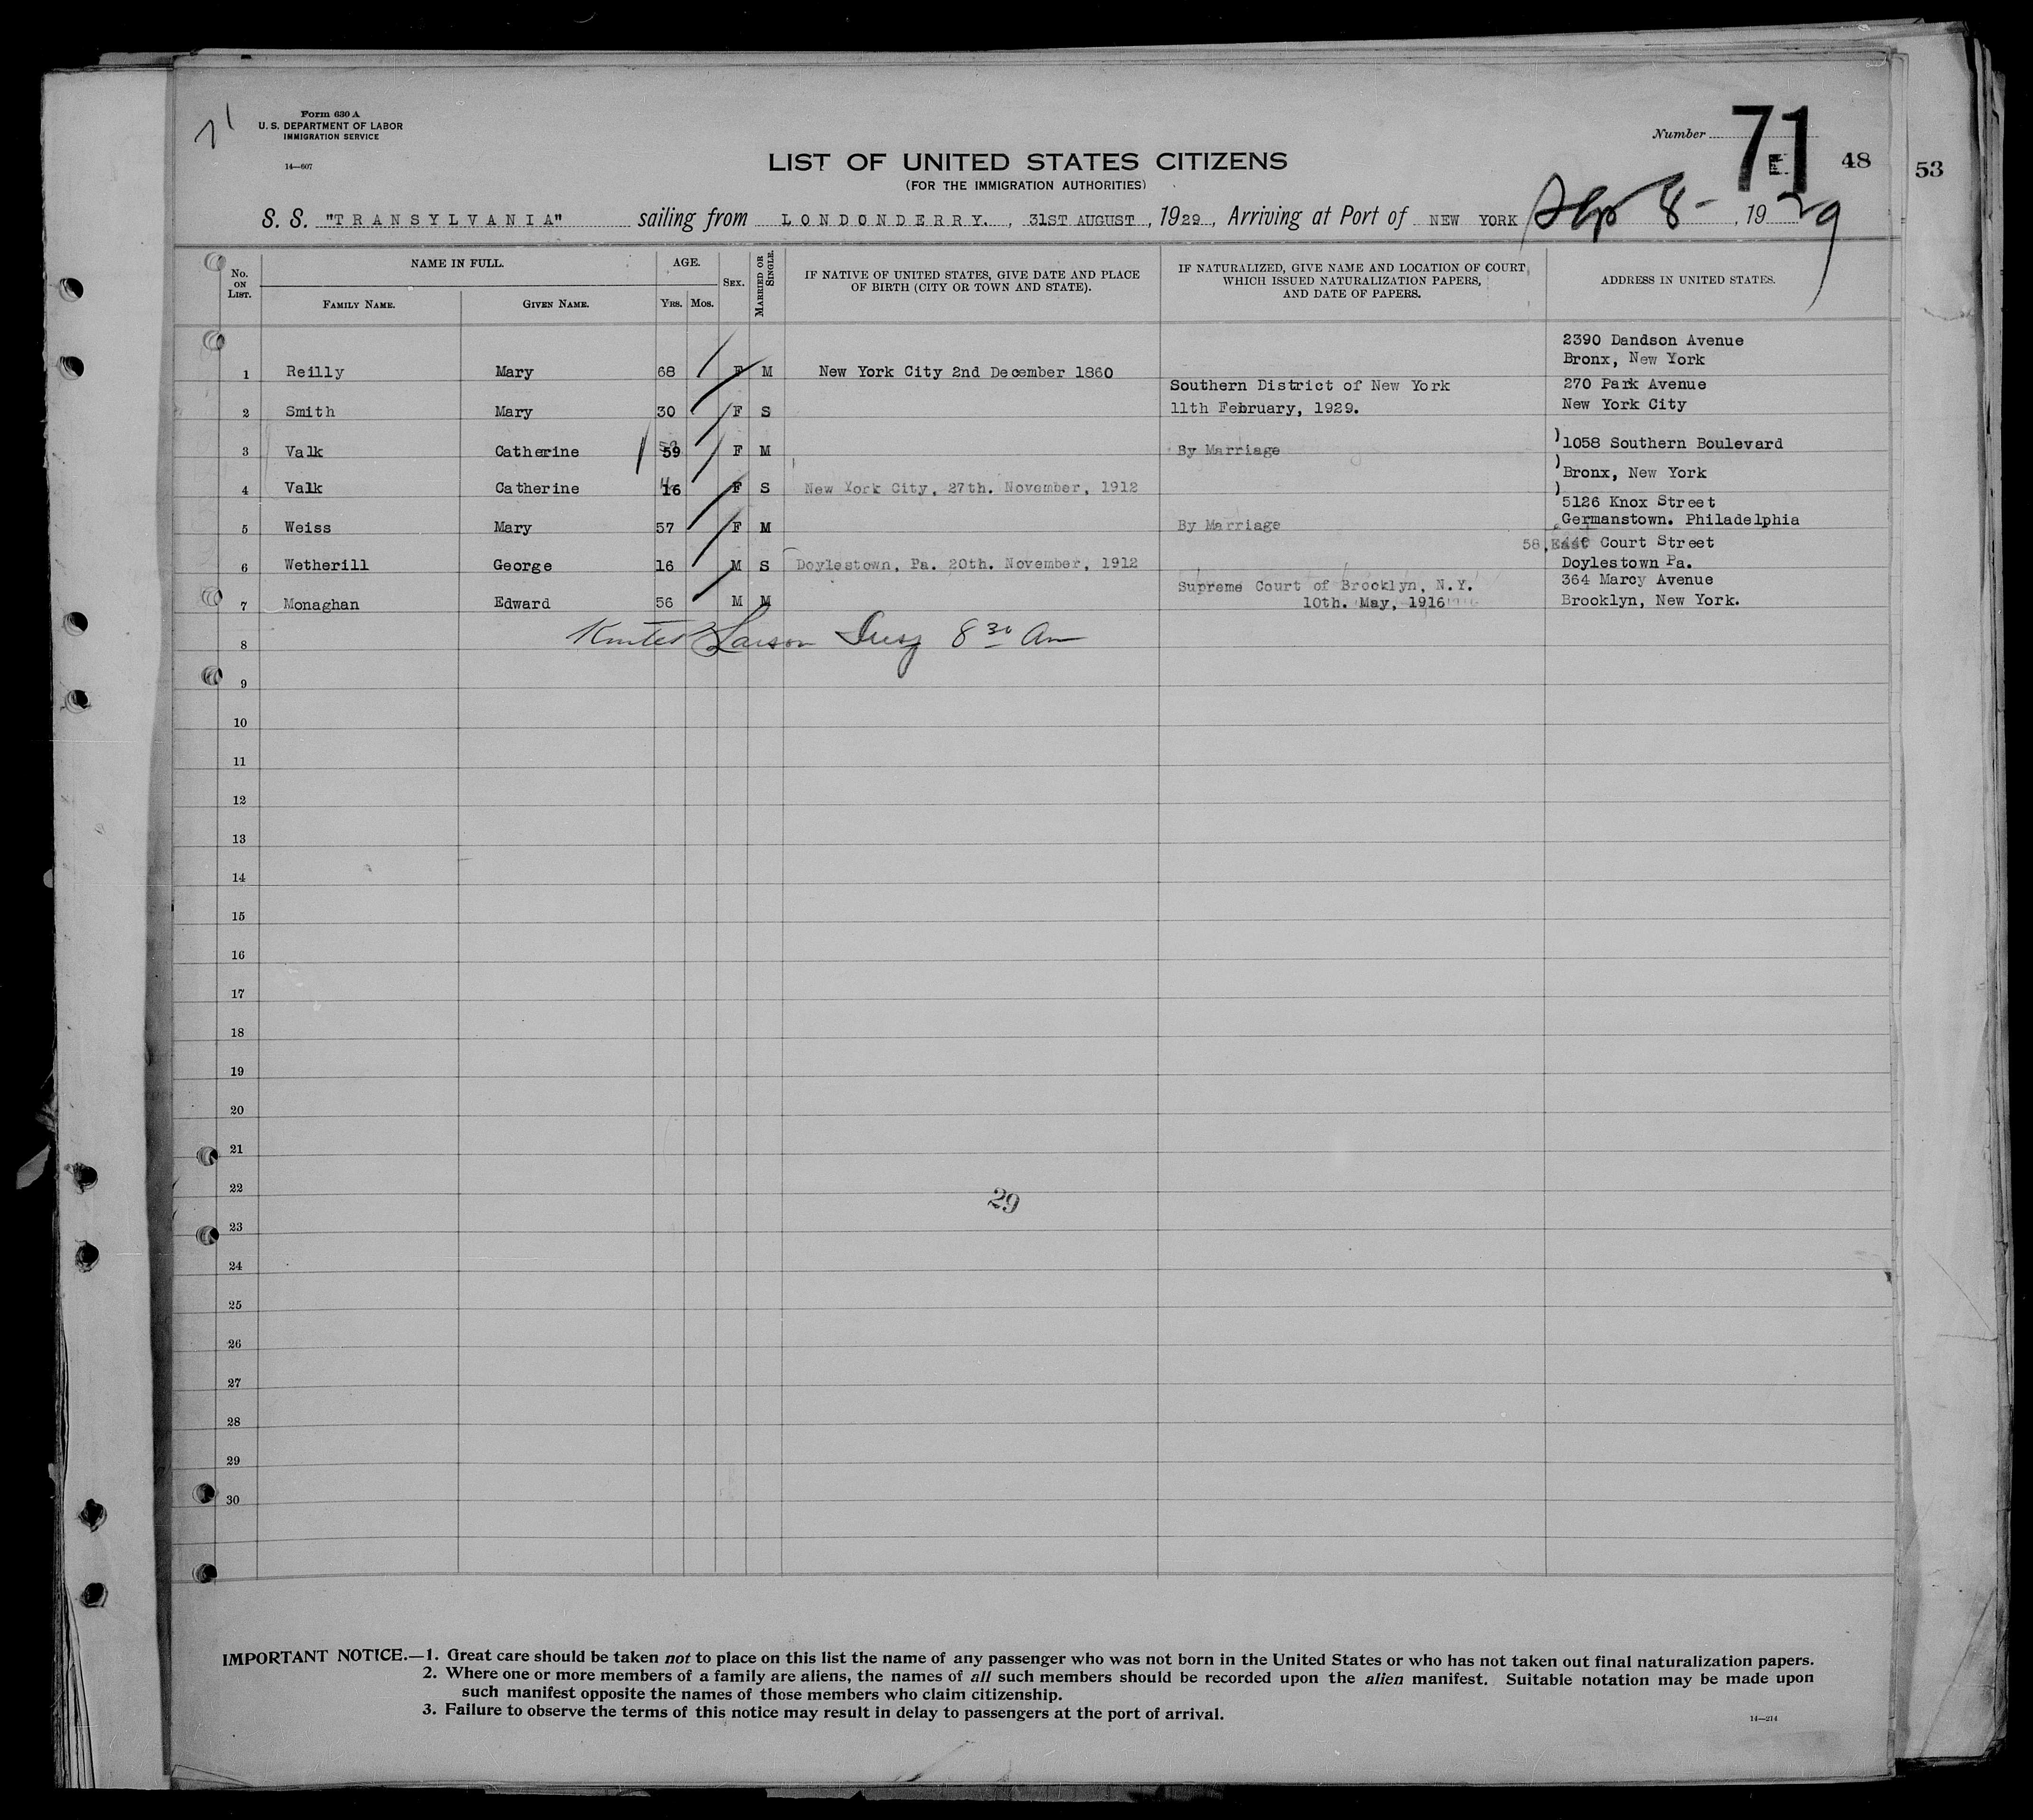 71
Form 630 A
U. S. DEPARTMENT OF LABOR
IMMIGRATION SERVICE
14—607
Number 71
48
53
LIST OF UNITED STATES CITIZENS
(FOR THE IMMIGRATION AUTHORITIES)
S. S. "TRANSYLVANIA" sailing from LONDONDERRY. , 31ST AUGUST , 1929 , Arriving at Port of NEW YORK Sep 8- , 1929
No. ON LIST.
NAME IN FULL.
FAMILY NAME.
GIVEN NAME.
AGE.
YRS. MOS.
SEX.
MARRIED OR SINGLE.
IF NATIVE OF UNITED STATES, GIVE DATE AND PLACE
OF BIRTH (CITY OR TOWN AND STATE).
IF NATURALIZED, GIVE NAME AND LOCATION OF COURT
WHICH ISSUED NATURALIZATION PAPERS,
AND DATE OF PAPERS.
ADDRESS IN UNITED STATES.
2390 Dandson Avenue
Bronx, New York
1 Reilly Mary 68 F M New York City 2nd December 1860
Southern District of New York 270 Park Avenue
2 Smith Mary 30 F S 11th February, 1929. New York City
3 Valk Catherine 59 F M By Marriage )1058 Southern Boulevard
)Bronx, New York
4 Valk Catherine 16 F S New York City, 27th. November, 1912 )
5126 Knox Street
5 Weiss Mary 57 F M By Marriage Germanstown. Philadelphia
58,East Court Street
6 Wetherill George 16 M S Doylestown, Pa. 20th. November, 1912 Doylestown Pa.
Supreme Court of Brooklyn, N.Y. 364 Marcy Avenue
7 Monaghan Edward 56 M M 10th. May, 1916 Brooklyn, New York.
8 Larson 8 30 Am
9
10
11
12
13
14
15
16
17
18
19
20
21
22
29
23
24
25
26
27
28
29
30
IMPORTANT NOTICE.—1. Great care should be taken not to place on this list the name of any passenger who was not born in the United States or who has not taken out final naturalization papers.
2. Where one or more members of a family are aliens, the names of all such members should be recorded upon the alien manifest. Suitable notation may be made upon
such manifest opposite the names of those members who claim citizenship.
3. Failure to observe the terms of this notice may result in delay to passengers at the port of arrival.
14—214